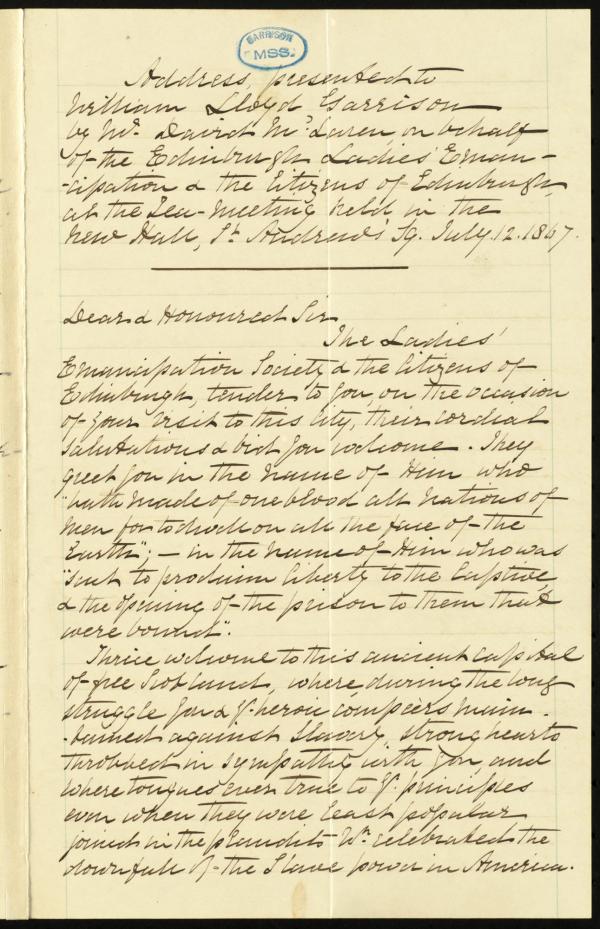 GARRISON
MSS.
Address, presented to
William Lloyd Garrison
by Mr. David McLaren, on behalf
of the Edinburgh Ladies' Eman-
-cipation & the Citizens of Edinburgh,
at the Tea-Meeting held in the
New Hall, St. Andrew's Sq. July. 12. 1867.
Dear & Honoured Sir
The Ladies'
Emancipation Society & the Citizens of
Edinburgh, tender to you, on the occasion
of your visit to this City, their cordial
salutations & bid you welcome. They
greet you in the name of Him who
"hath made of one blood all nations of
men for to dwell on all the face of the
Earth"; - in the name of Him who was
"sent to proclaim liberty to the Captive
& the opening of the prison to them that
were bound".
Thrice welcome to this ancient capital
of free Scotland, where, during the long
struggle you & yr. heroic compeers main-
-tained against Slavery, strong hearts
throbbed in sympathy with you, and
where tongues ever true to yr. principles
even when they were least popular
joined in the plaudits wh. celebrated the
downfall of the Slave power in America.